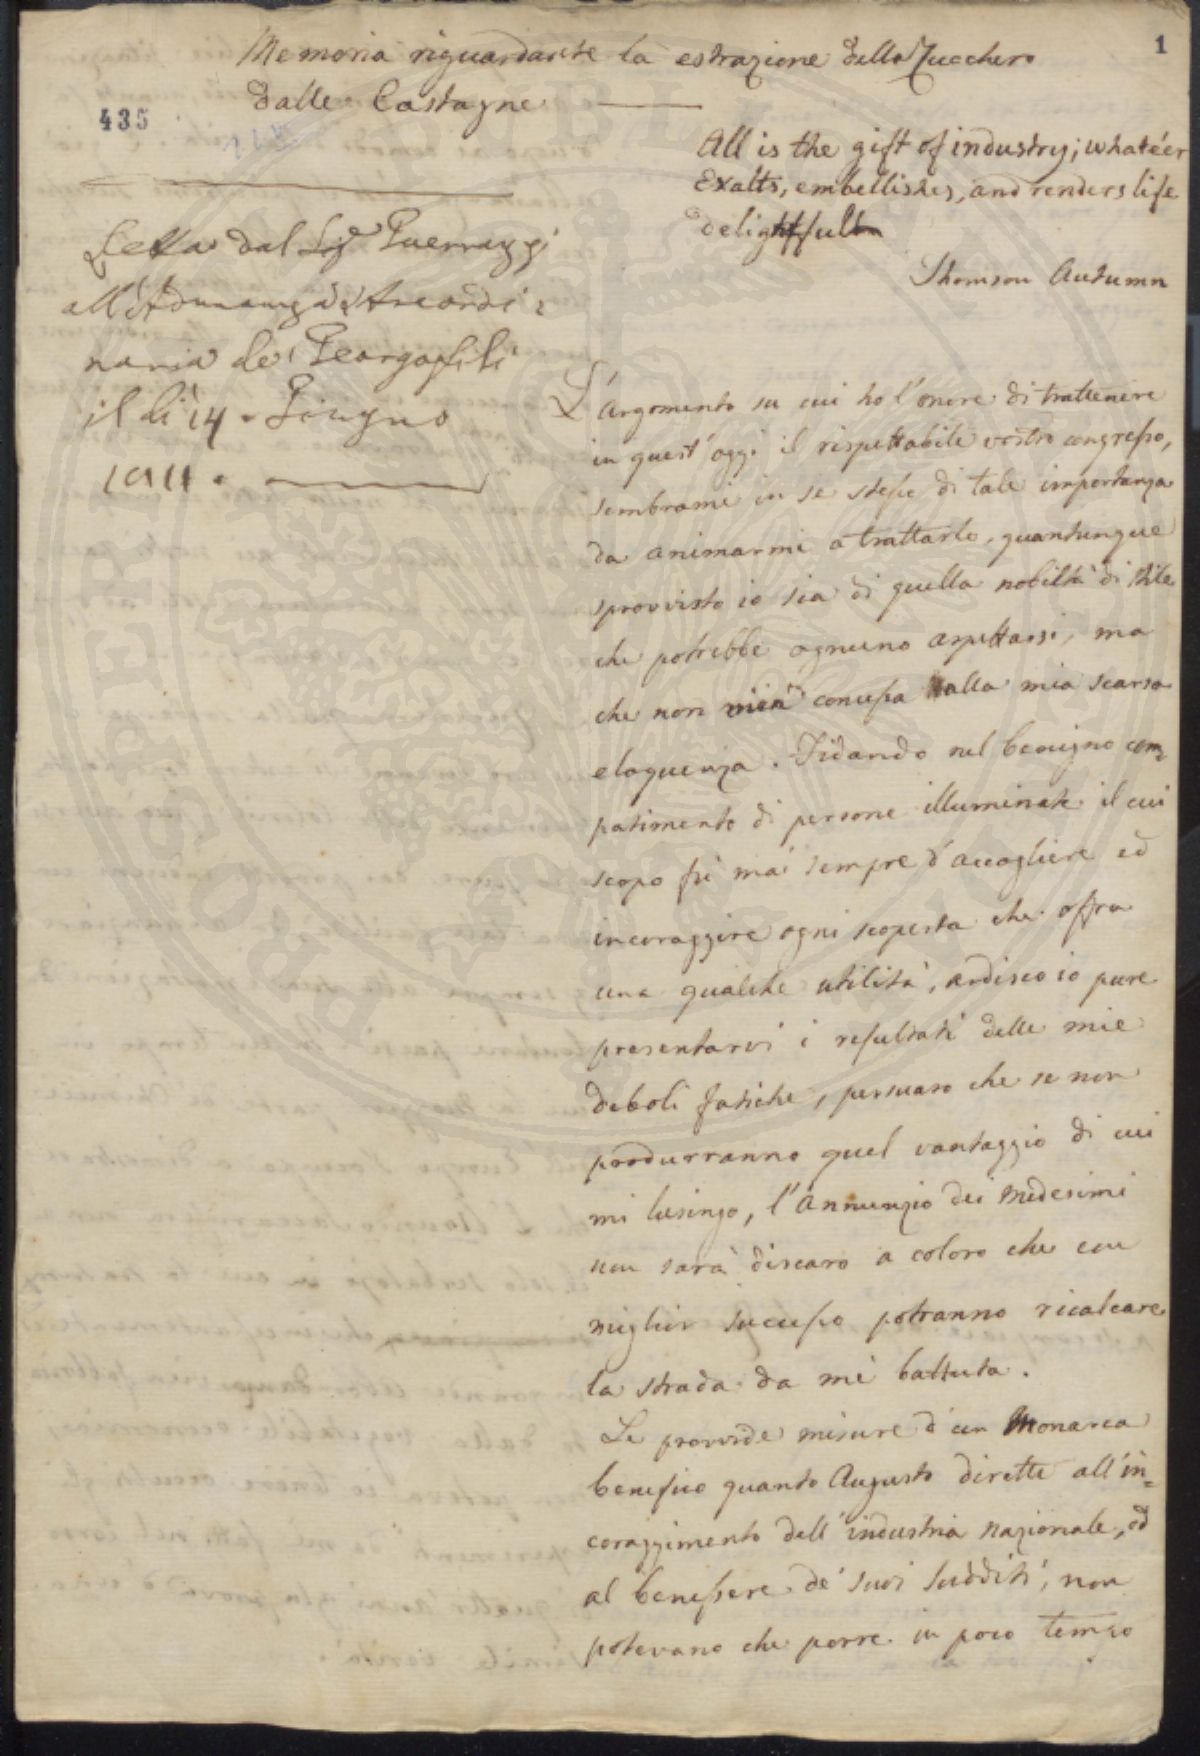 1
Memoria riguardante la estrazione dello Zucchero
dalle Castagne
435
All is the gift of industry; whate'er
Exalts, embellishes, and renders life
delightfull
Thomson Autumn
Letta dal Sig.
all'Adunanza
naria de' Georgofili
il dì 14. Giugno
1811.
L'argomento su cui ho l'onore di trattenere
in quest'oggi il rispettabile vostro congresso,
sembrami in se stesso di tale importanza
da animarmi a trattarlo, quantunque
sprovvisto io sia di quella nobiltà di stile
che potrebbe ognuno aspettarsi, ma
che non vien concessa dalla mia scarsa
eloquenza. Fidando nel benigno com=
patimento di persone illuminate il cui
scopo fù mai sempre d'accogliere ed
incoraggire ogni scoperta che offra
una qualche utilità, ardisco io pure
presentarvi i resultati delle mie
deboli fatiche, persuaso che se non
produrranno quel vantaggio di cui
mi lusingo, l'annunzio dei medesimi
non sarà discaro a coloro che con
miglior successo potranno ricalcare
la strada da me battuta.
Le provvide misure d'un Monarca
benefico quanto Augusto dirette all'in=
coraggimento dell'industria nazionale, ed
al benessere de' suoi sudditi, non
potevano che porre in poco tempo
PROPERTIES PUBLIC